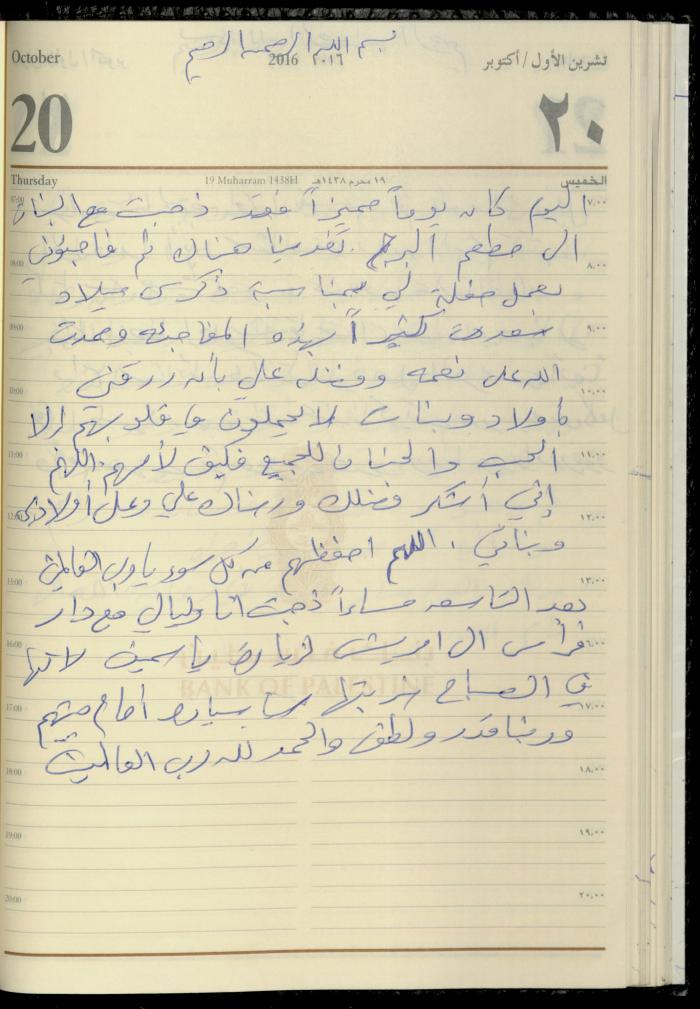 بسم الله الرحمن الرحيم
October 2016 ٢٠١٦ تشرين الأول / أكتوبر
20 ٢٠
Thursday 19 Muharram 1438H ١٩ محرم ١٤٣٨هـ الخميس
اليوم كان يوماً مميزاً فقد ذهبت مع البنات
الى مطعم البرج. تغدينا هناك ثم فاجئوني
بعمل حفلة لي بمناسبة ذكرى ميلاد
سعدت كثيراً بهذه المفاجئه وحمدت
الله على نعمه وفضله علي بأنه رزقني
بأولاد وبنات لا يحملون في قلوبهم إلا
الحب والحنان للجميع فكيف لأمهم. اللهم
إني أشكر فضلك ورضاك علي وعلى أولادي
وبناتي. اللهم احفظهم من كل سوء يا رب العالمين
بعد التاسعه مساءاً ذهبت انا وليالي مع دار
فراس ال امريش لزيارة ياسمين لانها
في الصباح سيارة امام بيتهم
وربنا قدر ولطف والحمد لله رب العالمين
بنك فلسطين
BANK OF PALESTINE
07:00 ٧,٠٠
08:00 ٨,٠٠
09:00 ٩,٠٠
10:00 ١٠,٠٠
11:00 ١١,٠٠
12:00 ١٢,٠٠
13:00 ١٣,٠٠
16:00 ١٦,٠٠
17:00 ١٧,٠٠
18:00 ١٨,٠٠
19:00 ١٩,٠٠
20:00 ٢٠,٠٠